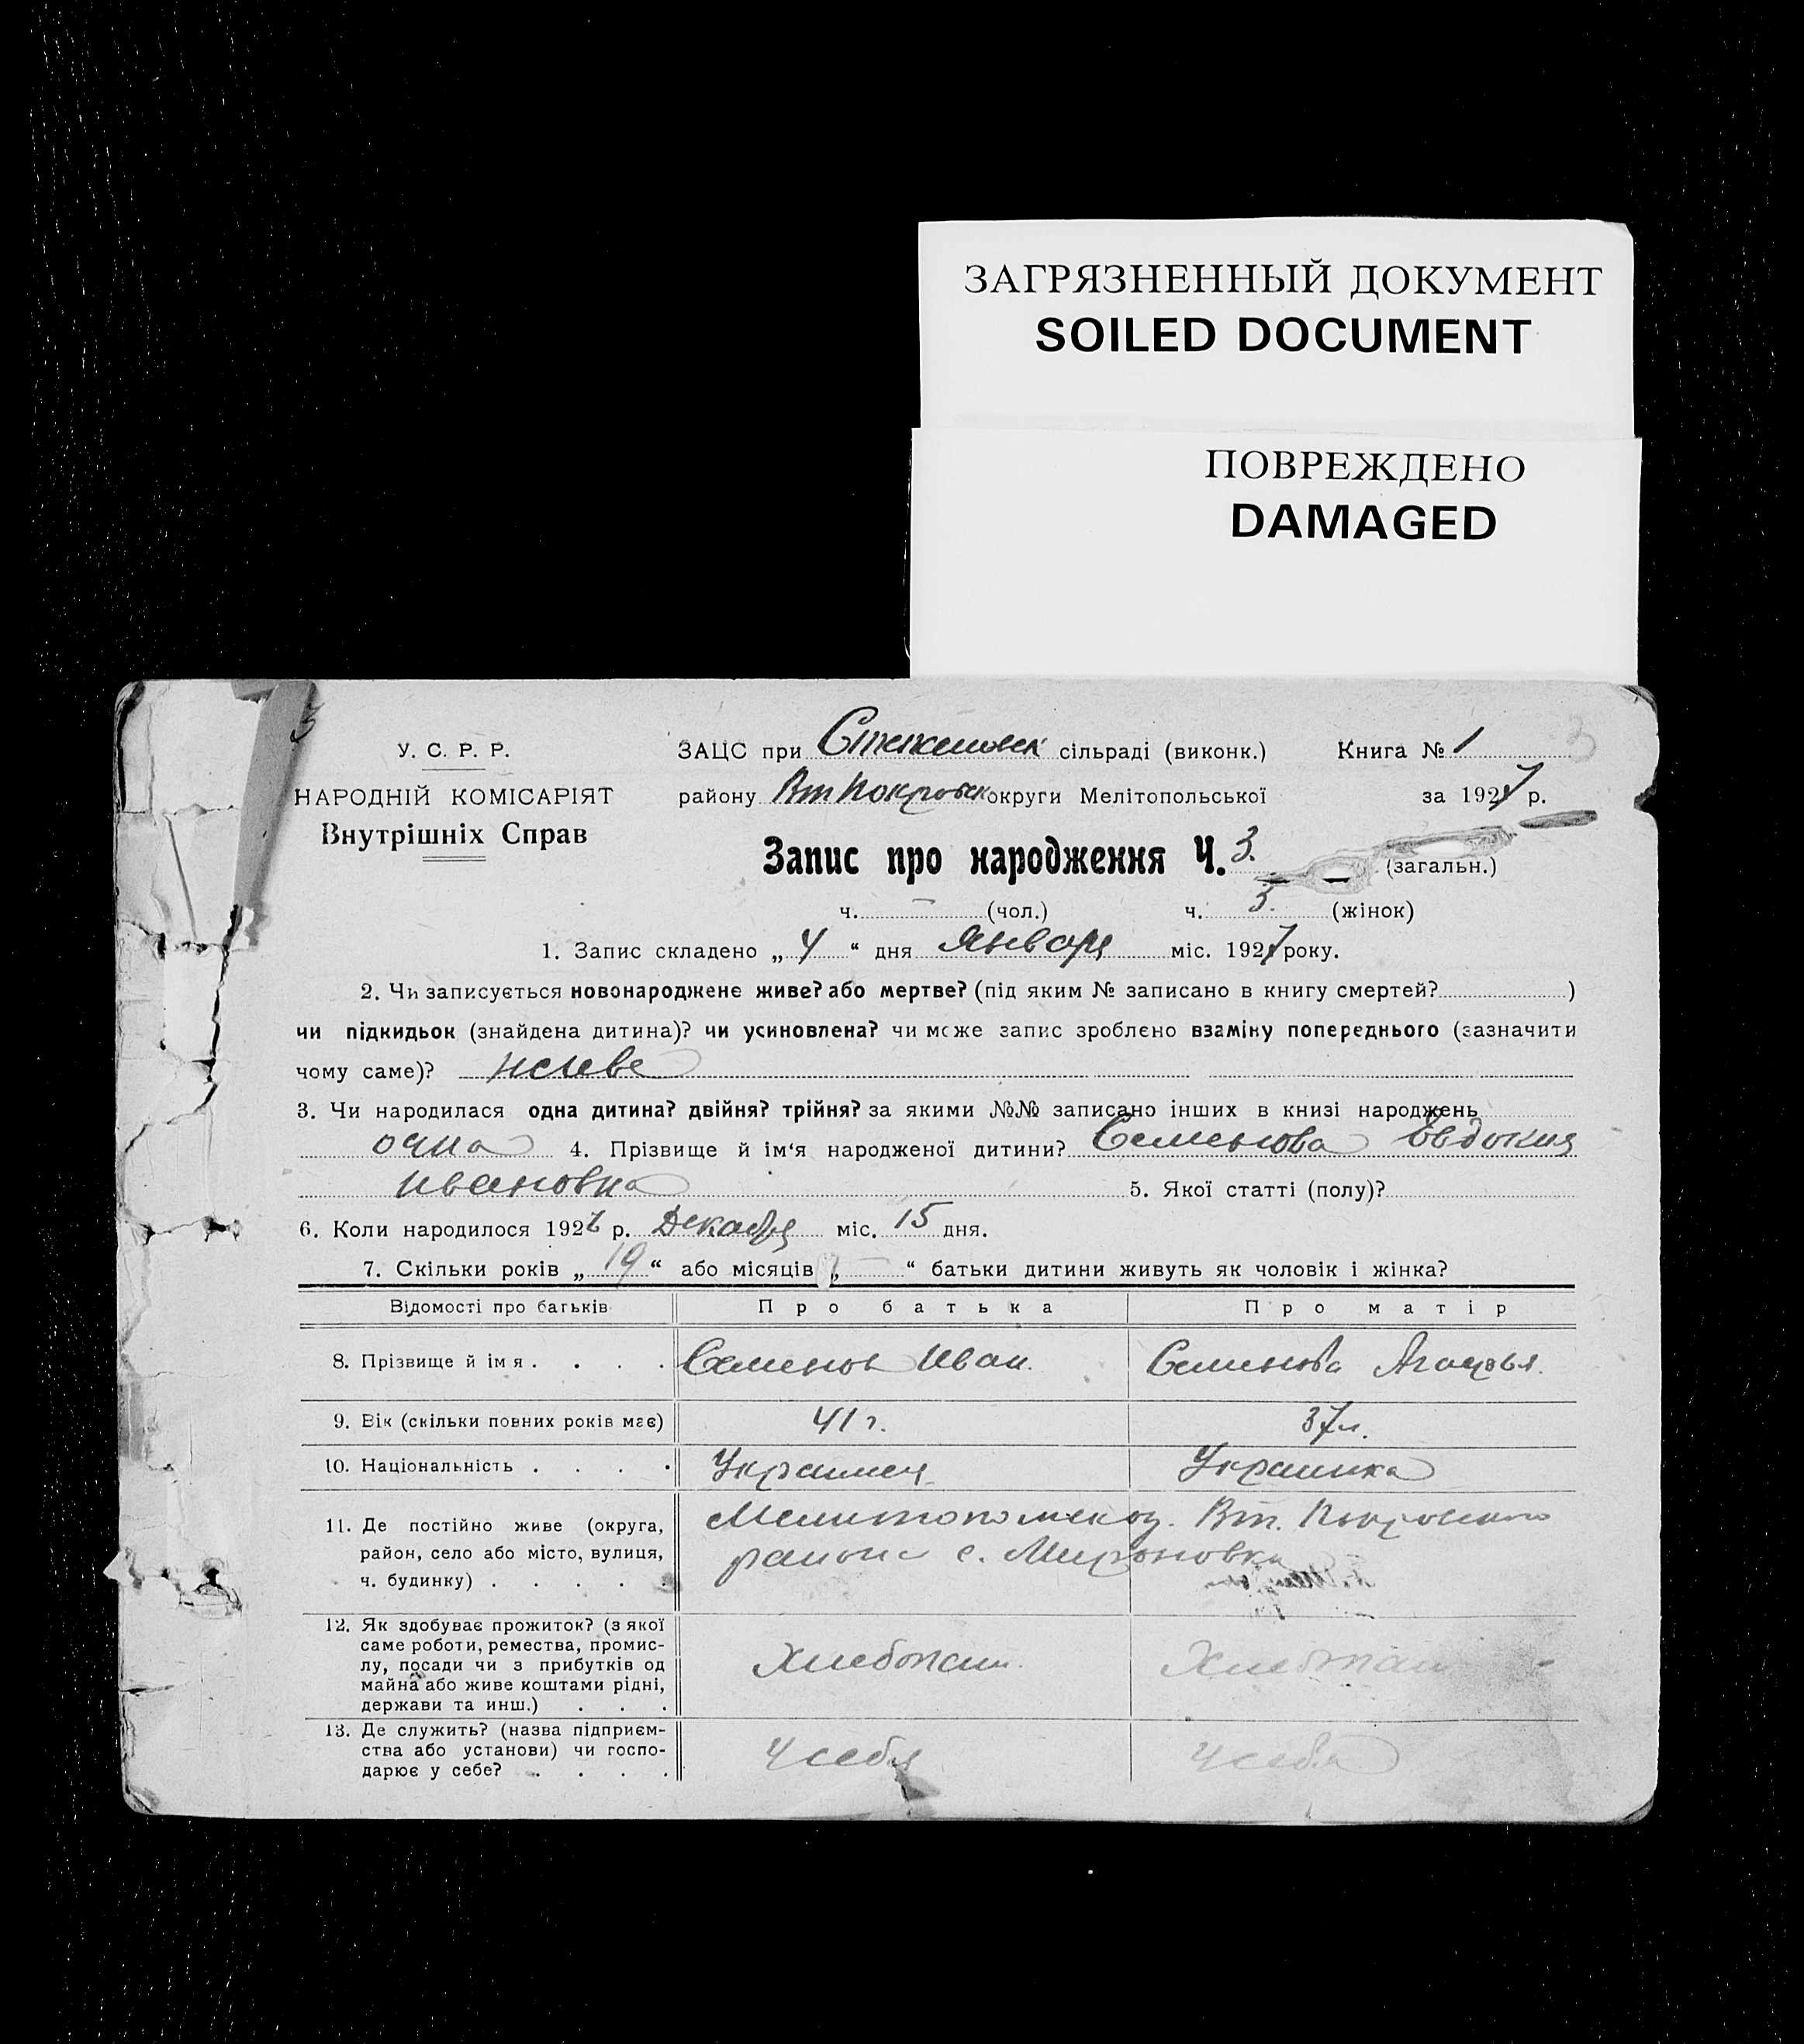 ЗАГРЯЗНЕННЫЙ ДОКУМЕНТ
SOILED DOCUMENT
ПОВРЕЖДЕНО
DAMAGED
3
3
У. С. Р. Р.
НАРОДНІЙ КОМІСАРІЯТ
Внутрішніх Справ
ЗАЦС при Степановск сільраді (виконк.) Книга № 1
району Вт Покровск округи Мелітопольської за 1927 р.
Запис про народження Ч. 3. (загальн.)
ч. — (чол.) ч. 3. (жінок)
1. Запис складено „ 4 “ дня Января міс. 1927 року.
2. Чи записується новонароджене живе? або мертве? (під яким № записано в книгу смертей? )
чи підкидьок (знайдена дитина)? чи усиновлена? чи може запис зроблено взаміну попереднього (зазначити
чому саме)? живе
3. Чи народилася одна дитина? двійня? трійня? за якими №№ записано інших в книзі народжень
одна 4. Прізвище й ім‘я народженої дитини? Семенова Евдокия
Ивановна 5. Якої статті (полу)?
6. Коли народилося 1926 р. Декабря міс. 15 дня.
7. Скільки років „ 19 “ або місяців „ — “ батьки дитини живуть як чоловік і жінка?
Відомості про батьків Про батька Про матір
8. Прізвище й імя . . . . Семенов Иван. Семенова Агафья.
9. Вік (скільки повних років має) 41 г. 37 л.
10. Національність . . . . Украинец Украинка
11. Де постійно живе (округа,
район, село або місто, вулиця,
ч. будинку) . . . . .
Мелитопольск о. Вт. Покровского
района с. Мироновка
12. Як здобуває прожиток? (з якої
саме роботи, ремества, промис-
лу, посади чи з прибутків од
майна або живе коштами рідні,
держави та инш.) . . .
Хлебопаш. Хлебопаш
13. Де служить? (назва підприєм-
ства або установи) чи госпо-
дарює у себе? . . . .
У себя У себя